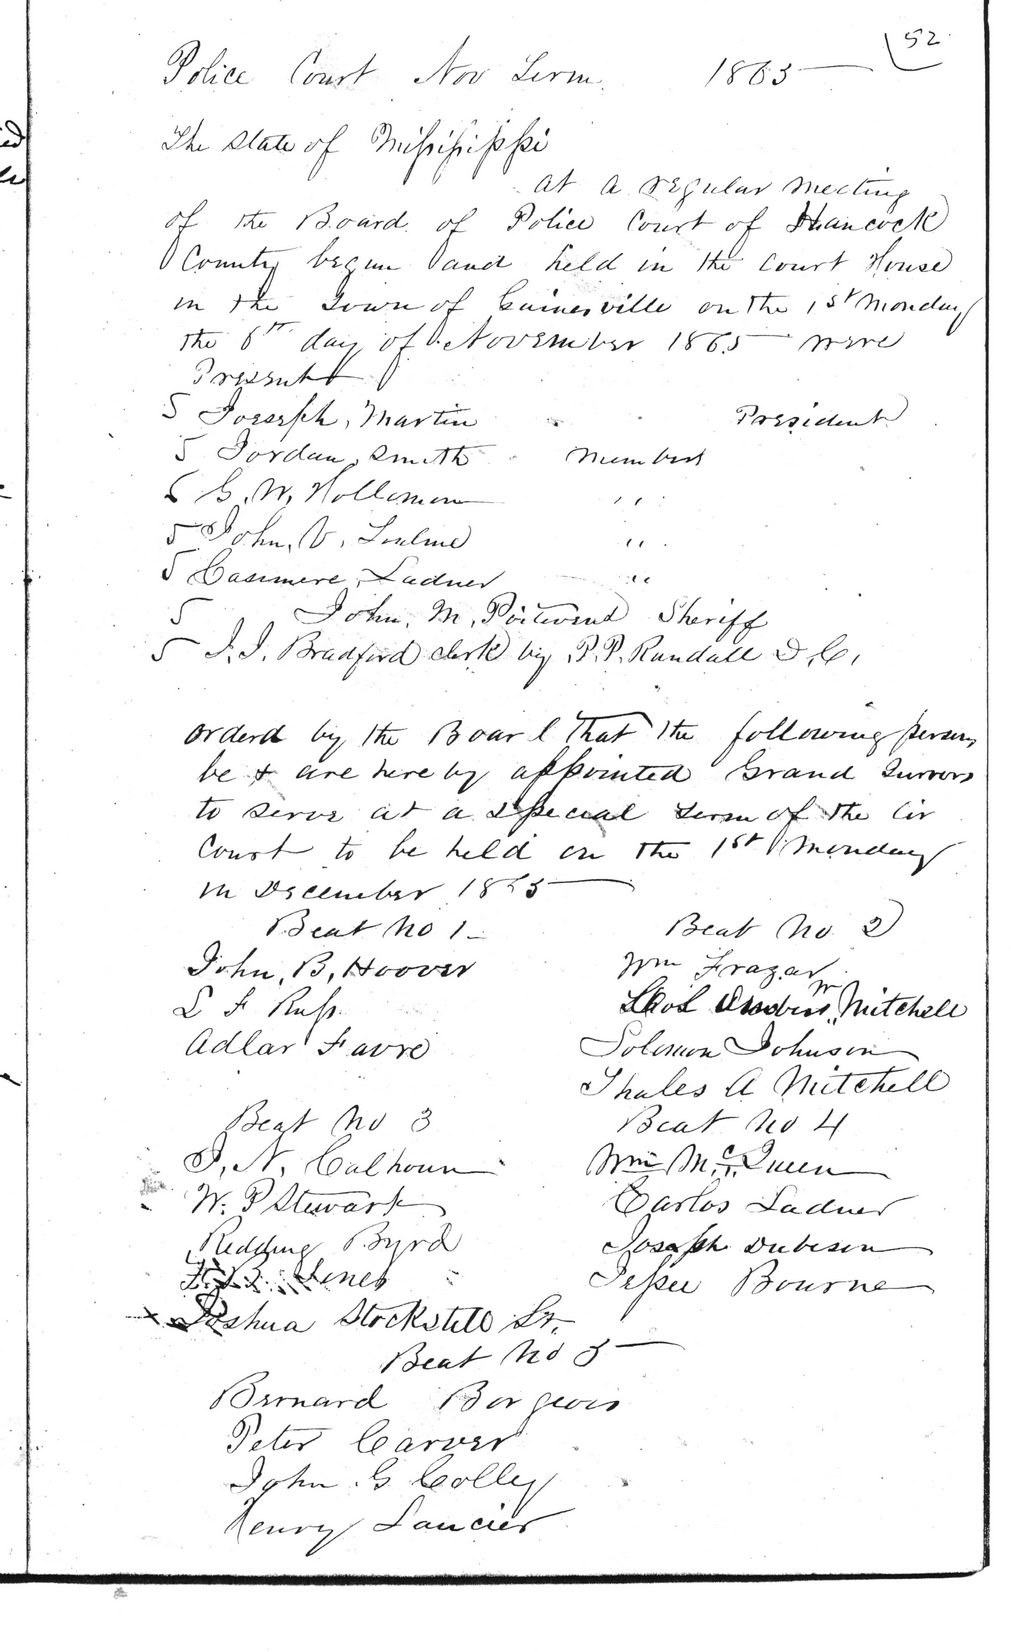 52
Police Court Nov Term 1865
The State of Mississippi
at a regular meeting
of the Board of Police Court of Hancock
County begun and held in the Court House
in the Town of Gainesville on the 1st Monday
the 6th day of November 1865 were
Present
5 Joseseph, Martin President
5 Jordan, Smith Members
5 G. W. Holloman " "
5 John, V, Toulme " "
5 Casimere, Ladner " "
5 John, M, Poitevent Sheriff
5 J. J. Bradford clerk by P. P. Randall D. C,
orderd by the Board That the following persons
be & are here by appointed Grand Jurrors
to serve at a Special Term of the Cir
Court to be held on the 1st Monday
in December 1865
Beat No 1 Beat No 2
John, B, Hoover Wm Frazar
L F Russ Mitchell
Adlar Favre Solomon Johnson
Thales A Mitchell
Beat No 3 Beat No 4
J, N, Calhoun Wm McQueen
W. P Stewart Carlos Ladner
Redding Byrd Joseph Dubeson
Jones Jessee Bourne
Joshua Stockstill Sr.
Beat No 5
Bernard Borgeois
Peter Carver
John G Colley
Henry Saucier